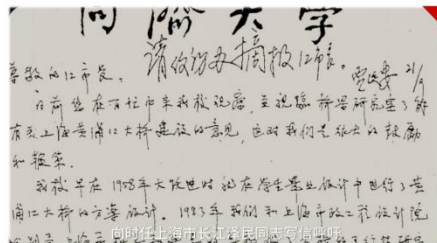 同济大学
请信访办摘报江市长。
21/9
尊敬的江市长，
日前您在百忙中来我校视察，并视临桥梁研究室了解
有关上海黄浦江大桥建设的意见，这对我们是很大的鼓励
和鞭策。
我校早在1958年大跃进时就在学生毕业设计中进行了黄
浦江大桥的方案设计。1983年我们和上海市政工程设计院
向时任上海市长江泽民同志写信呼吁